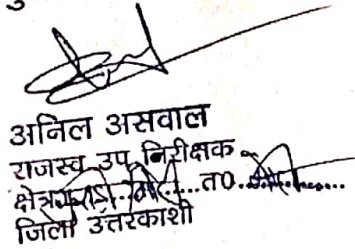 अनिल असवाल
राजस्व उप निरीक्षक
क्षेत्र.......त0.......
जिला उत्तरकाशी